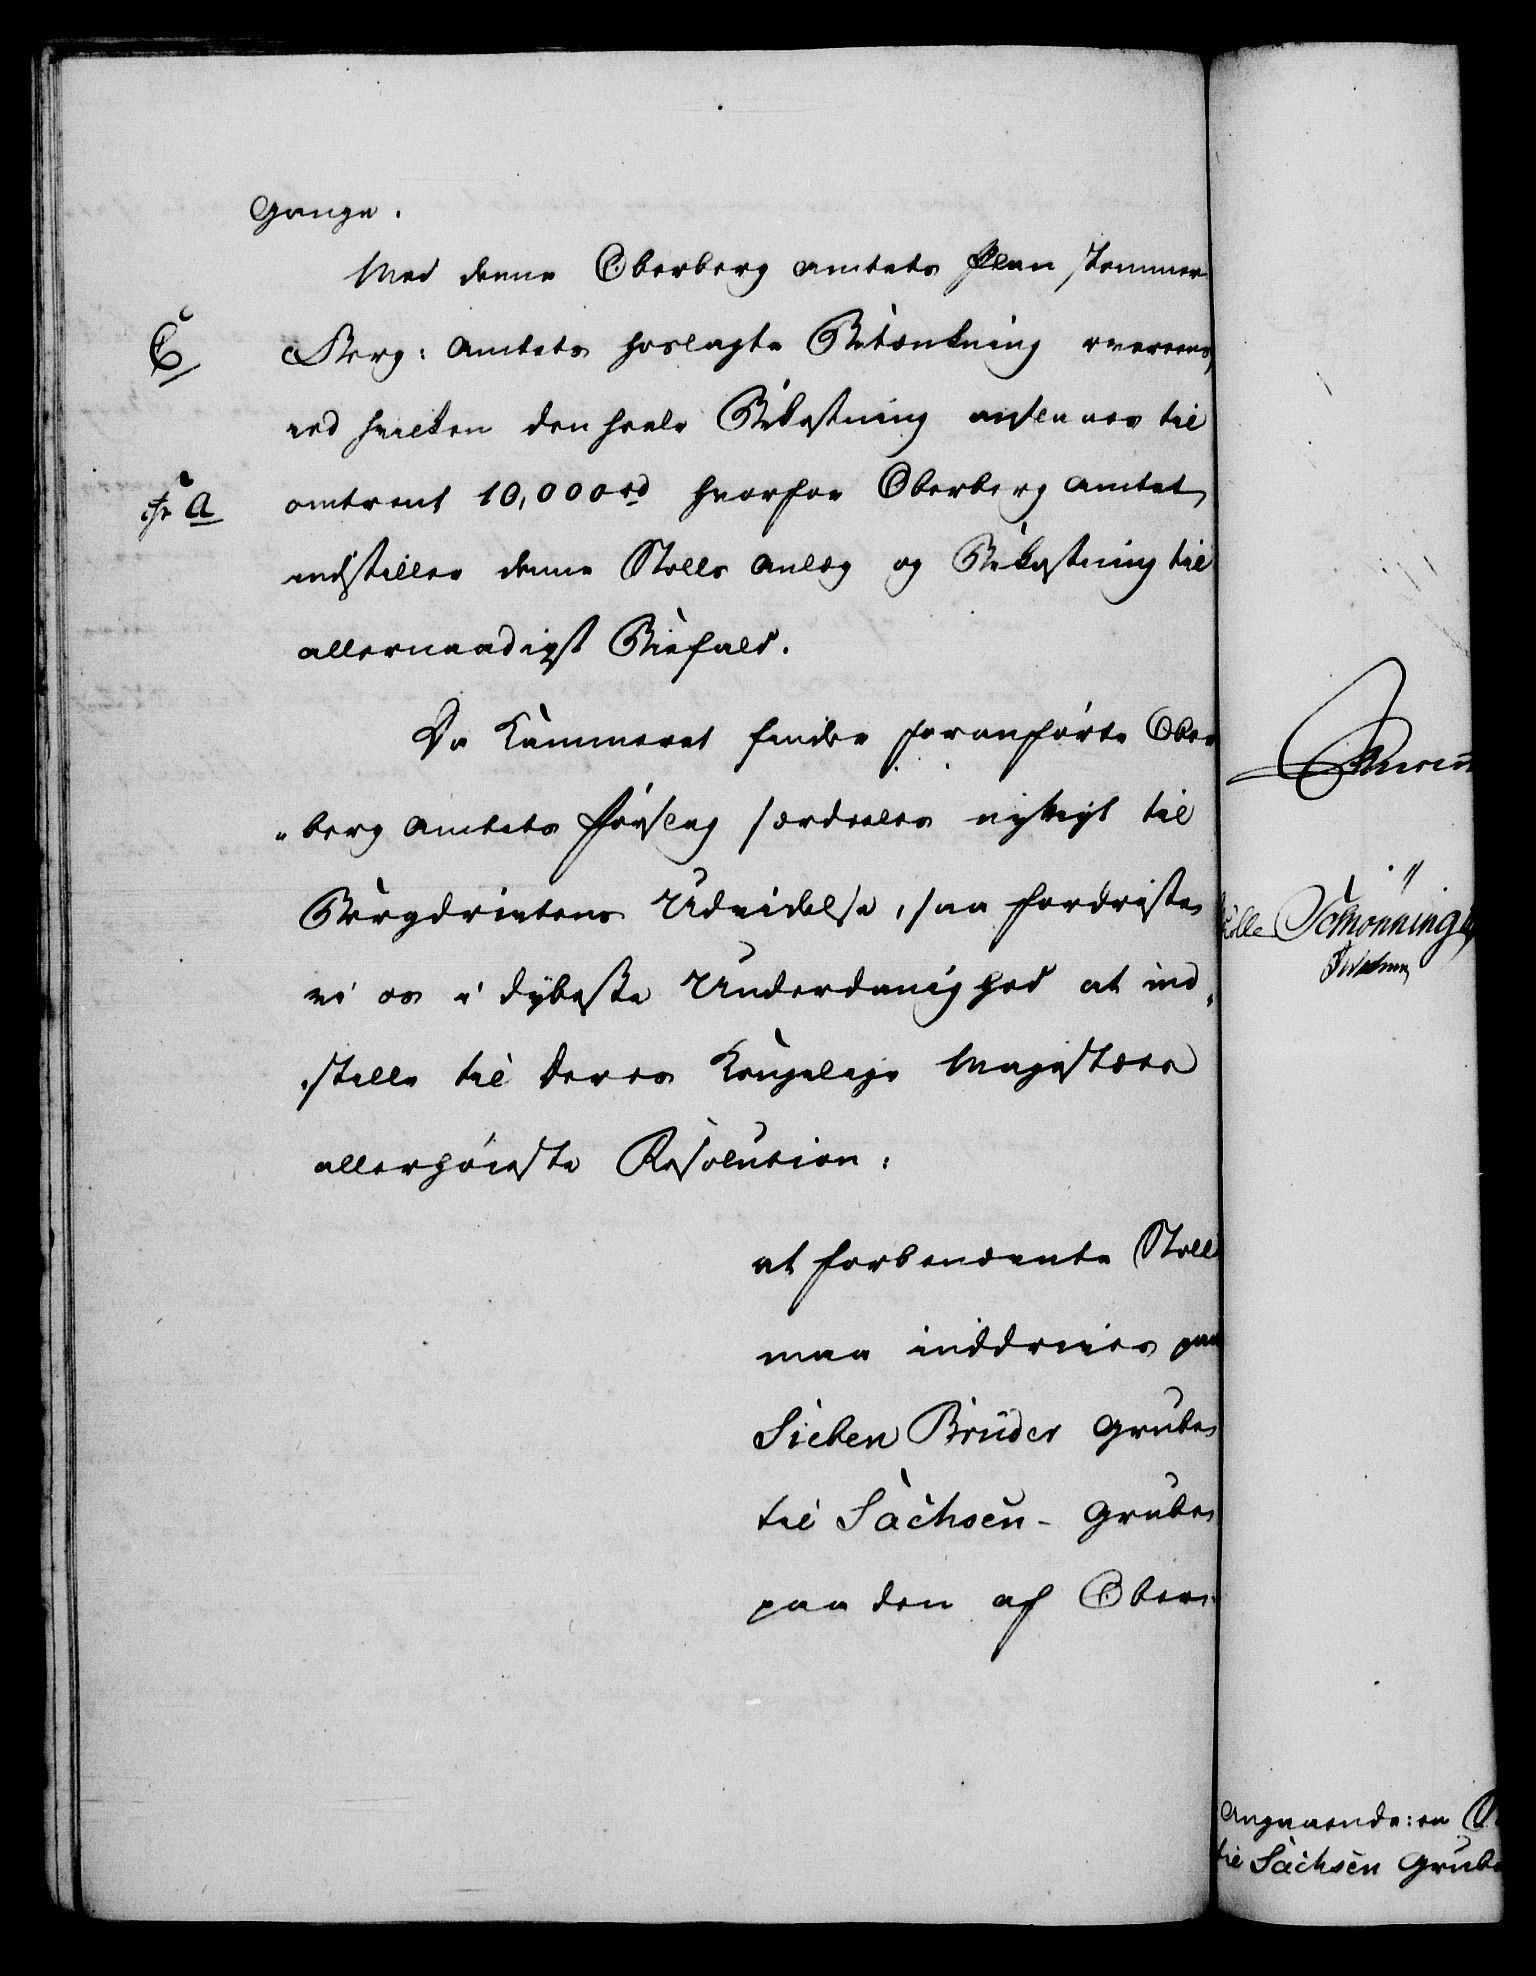 Gange.
Med denne Oberberg Amtets Plan stemmer
C
Berg: Amtets hoslagte Betænkning overeens,
ved hvilken den heele Bekostning ansees til
fr a
omtrent 10,000 rd hvorfor Oberberg Amtet
indstiller denne Stolls Anlæg og Bekostning til
allernaadigst Biefald.
Da Kammeret finder foranførte Ober
"berg Amtets Forslag særdeeles nyttigt til
Bergdriftens Udvidelse, saa fordriste
vi os i dybeste Underdanighed at ind,
"stille til Deres Kongelige Majestæts
allerhøieste Resolution:
at forbenævnte Stoll
maa inddrives paa
Sieben Brüder Grube
til Sachsen - Grube
paa den af Ober:
Schönning
Angaaende: en
til Sachsen Grube